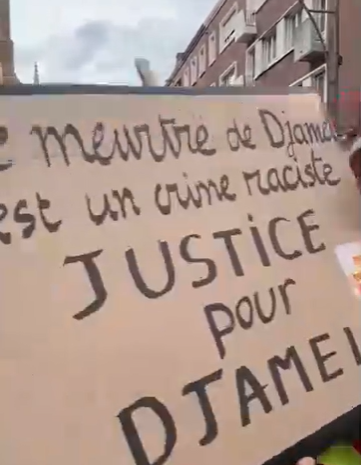 e meurtre de Djamel
est un crime raciste
JUSTICE
pour
DJAMEL